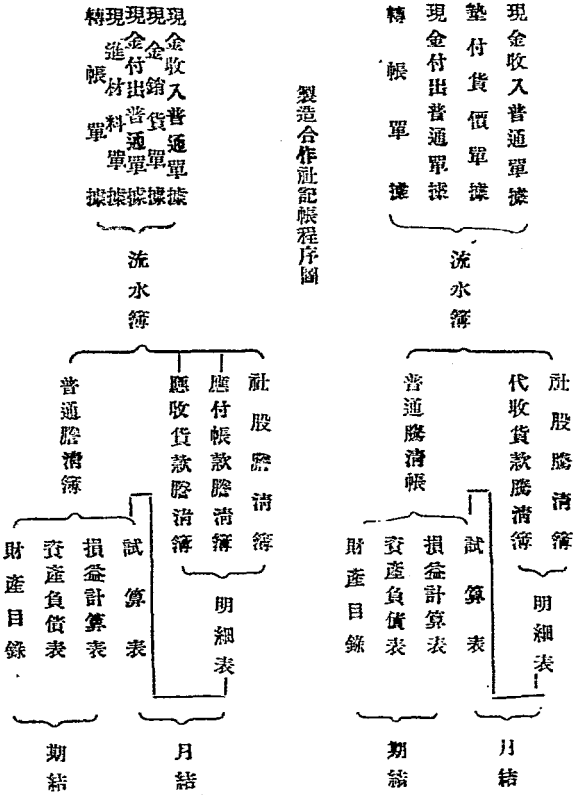 現金收入普通單據
墊付貨價單據
現金付出普通單據
轉帳單據
流水簿
社股謄清簿
代收貨款謄清簿
普通謄清帳
明細表
試算表
損益計算表
資產負債表
財產目錄
月結
期結
製造合作社記帳程序圖
現金收入普通單據
現金銷貨單據
現金付出普通單據
現進材料單據
轉帳單據
流水簿
社股謄清簿
應付帳款謄清簿
應收貨款謄清簿
普通謄清簿
明細表
試算表
損益計算表
資產負債表
財產目錄
月結
期結